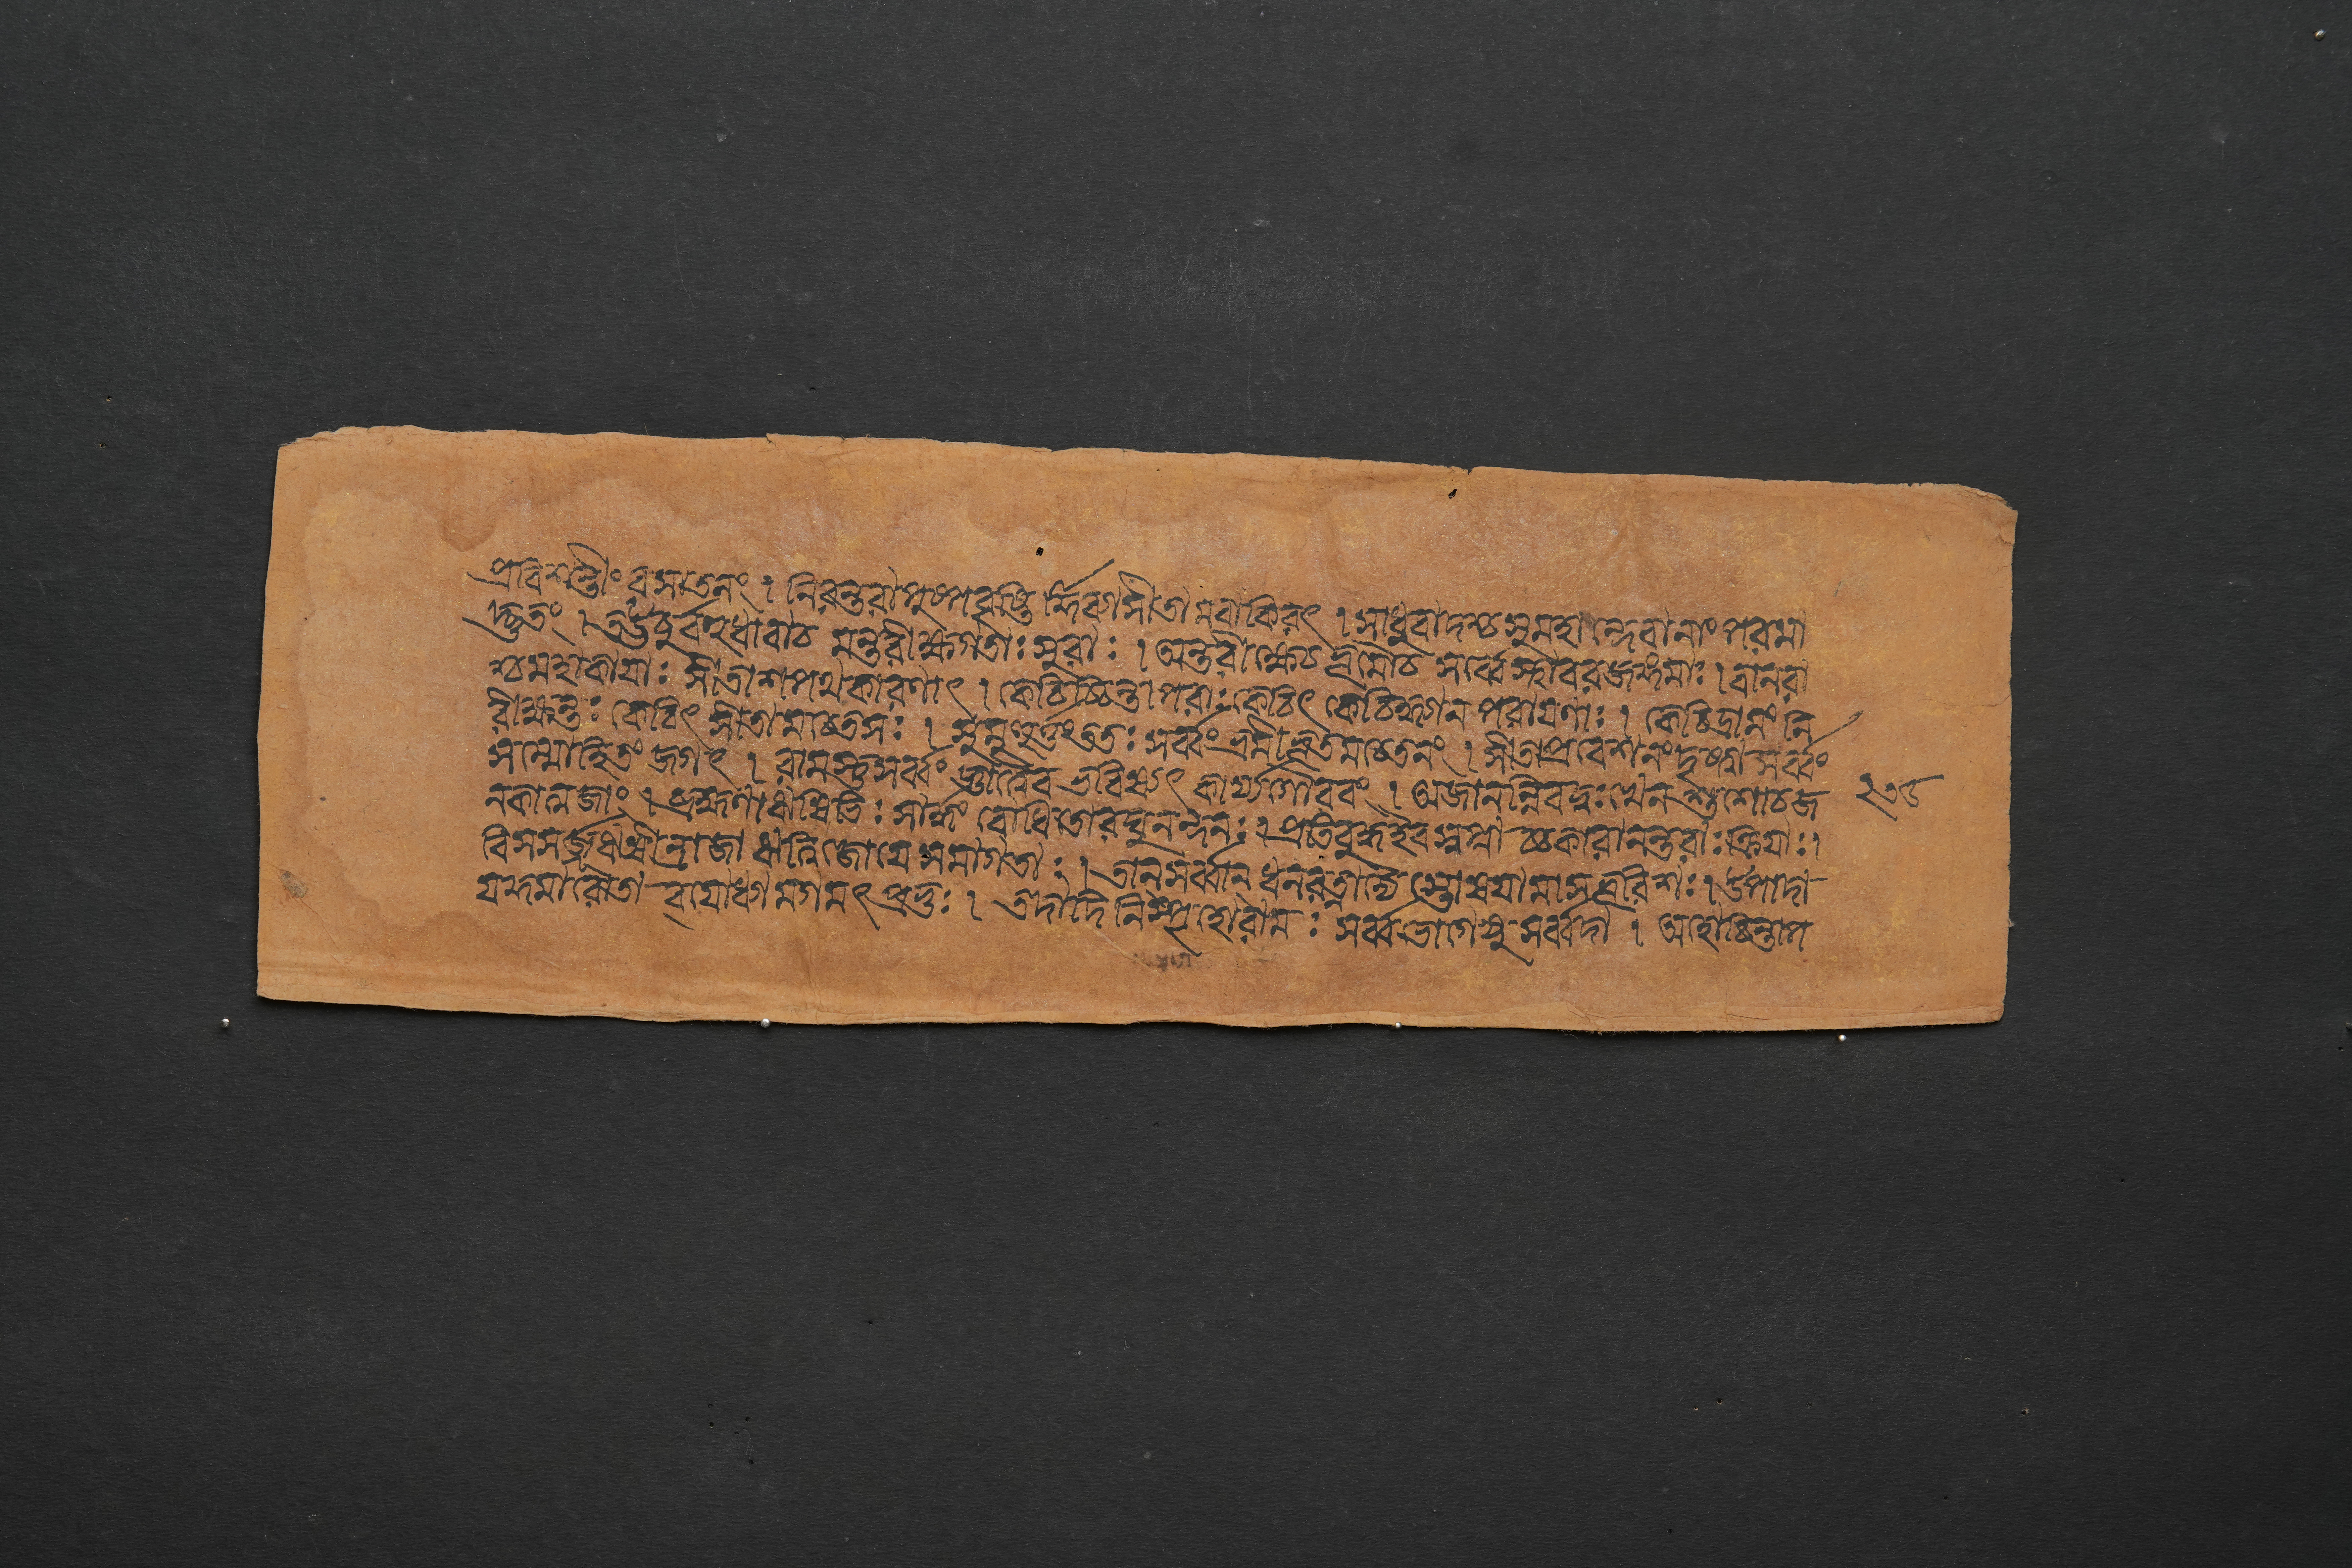 প্রবিশন্তীং বসাতলং । নিরন্তরা পুষ্পবৃষ্টি র্দ্দিব্যা সীতা মবাকিরৎ । সাধুবাদশ্চ সুমহা ন্দেবানাং পরমা
দ্ভুতং । ঊচুর্ব্বহুধাবাচ মন্তরীক্ষগতাঃ সুরাঃ । অন্তরীক্ষেচ ভূমৌচ সর্ব্বে স্থাবরজঙ্গমাঃ । বানরা
শ্চ মহাকায়াঃ সীতাশপথকারণাৎ । কেচিচ্চিন্তাপরাঃ কেচিৎ কেচিদ্ধ্যান পরায়ণাঃ । কেচিদ্রামং নি
রীক্ষন্তঃ কেচিৎ সীতামচেতসঃ । মুহূর্ত্তমাত্রং তৎ সর্ব্বং তূষ্ণীম্ভূতমচেতনং । সীতাপ্রবেশনং দৃষ্ট্বা সর্ব্বং
সম্মোহিতং জগৎ । রামস্তু সর্ব্বং জ্ঞাত্বৈব ভবিষ্যৎ কার্য্যগৌরবং । অজানন্নিব দুঃখেন শুশোচ জ
নকাত্মজাং । ব্রহ্মণা ঋষিভিঃ সার্দ্ধং বোধিতো রঘুনন্দনঃ । প্রতিবুদ্ধইব স্বপ্না চ্চকারানন্তরাঃ ক্রিয়াঃ ।
বিসসর্জ্জ ঋষীন্ রাজা ঋত্বিজো যে সমাগতাঃ । তান্ সর্ব্বান্ ধনরত্নাদ্যৈ স্তোষয়ামাস ভূরিশঃ । উপাদা
য় কুমারৌ তা বযোধ্যা মগমৎ প্রভুঃ । তদাদি নিস্পৃহো রামঃ সর্ব্বভোগেষু সর্ব্বদা । আত্মচিন্তাপ